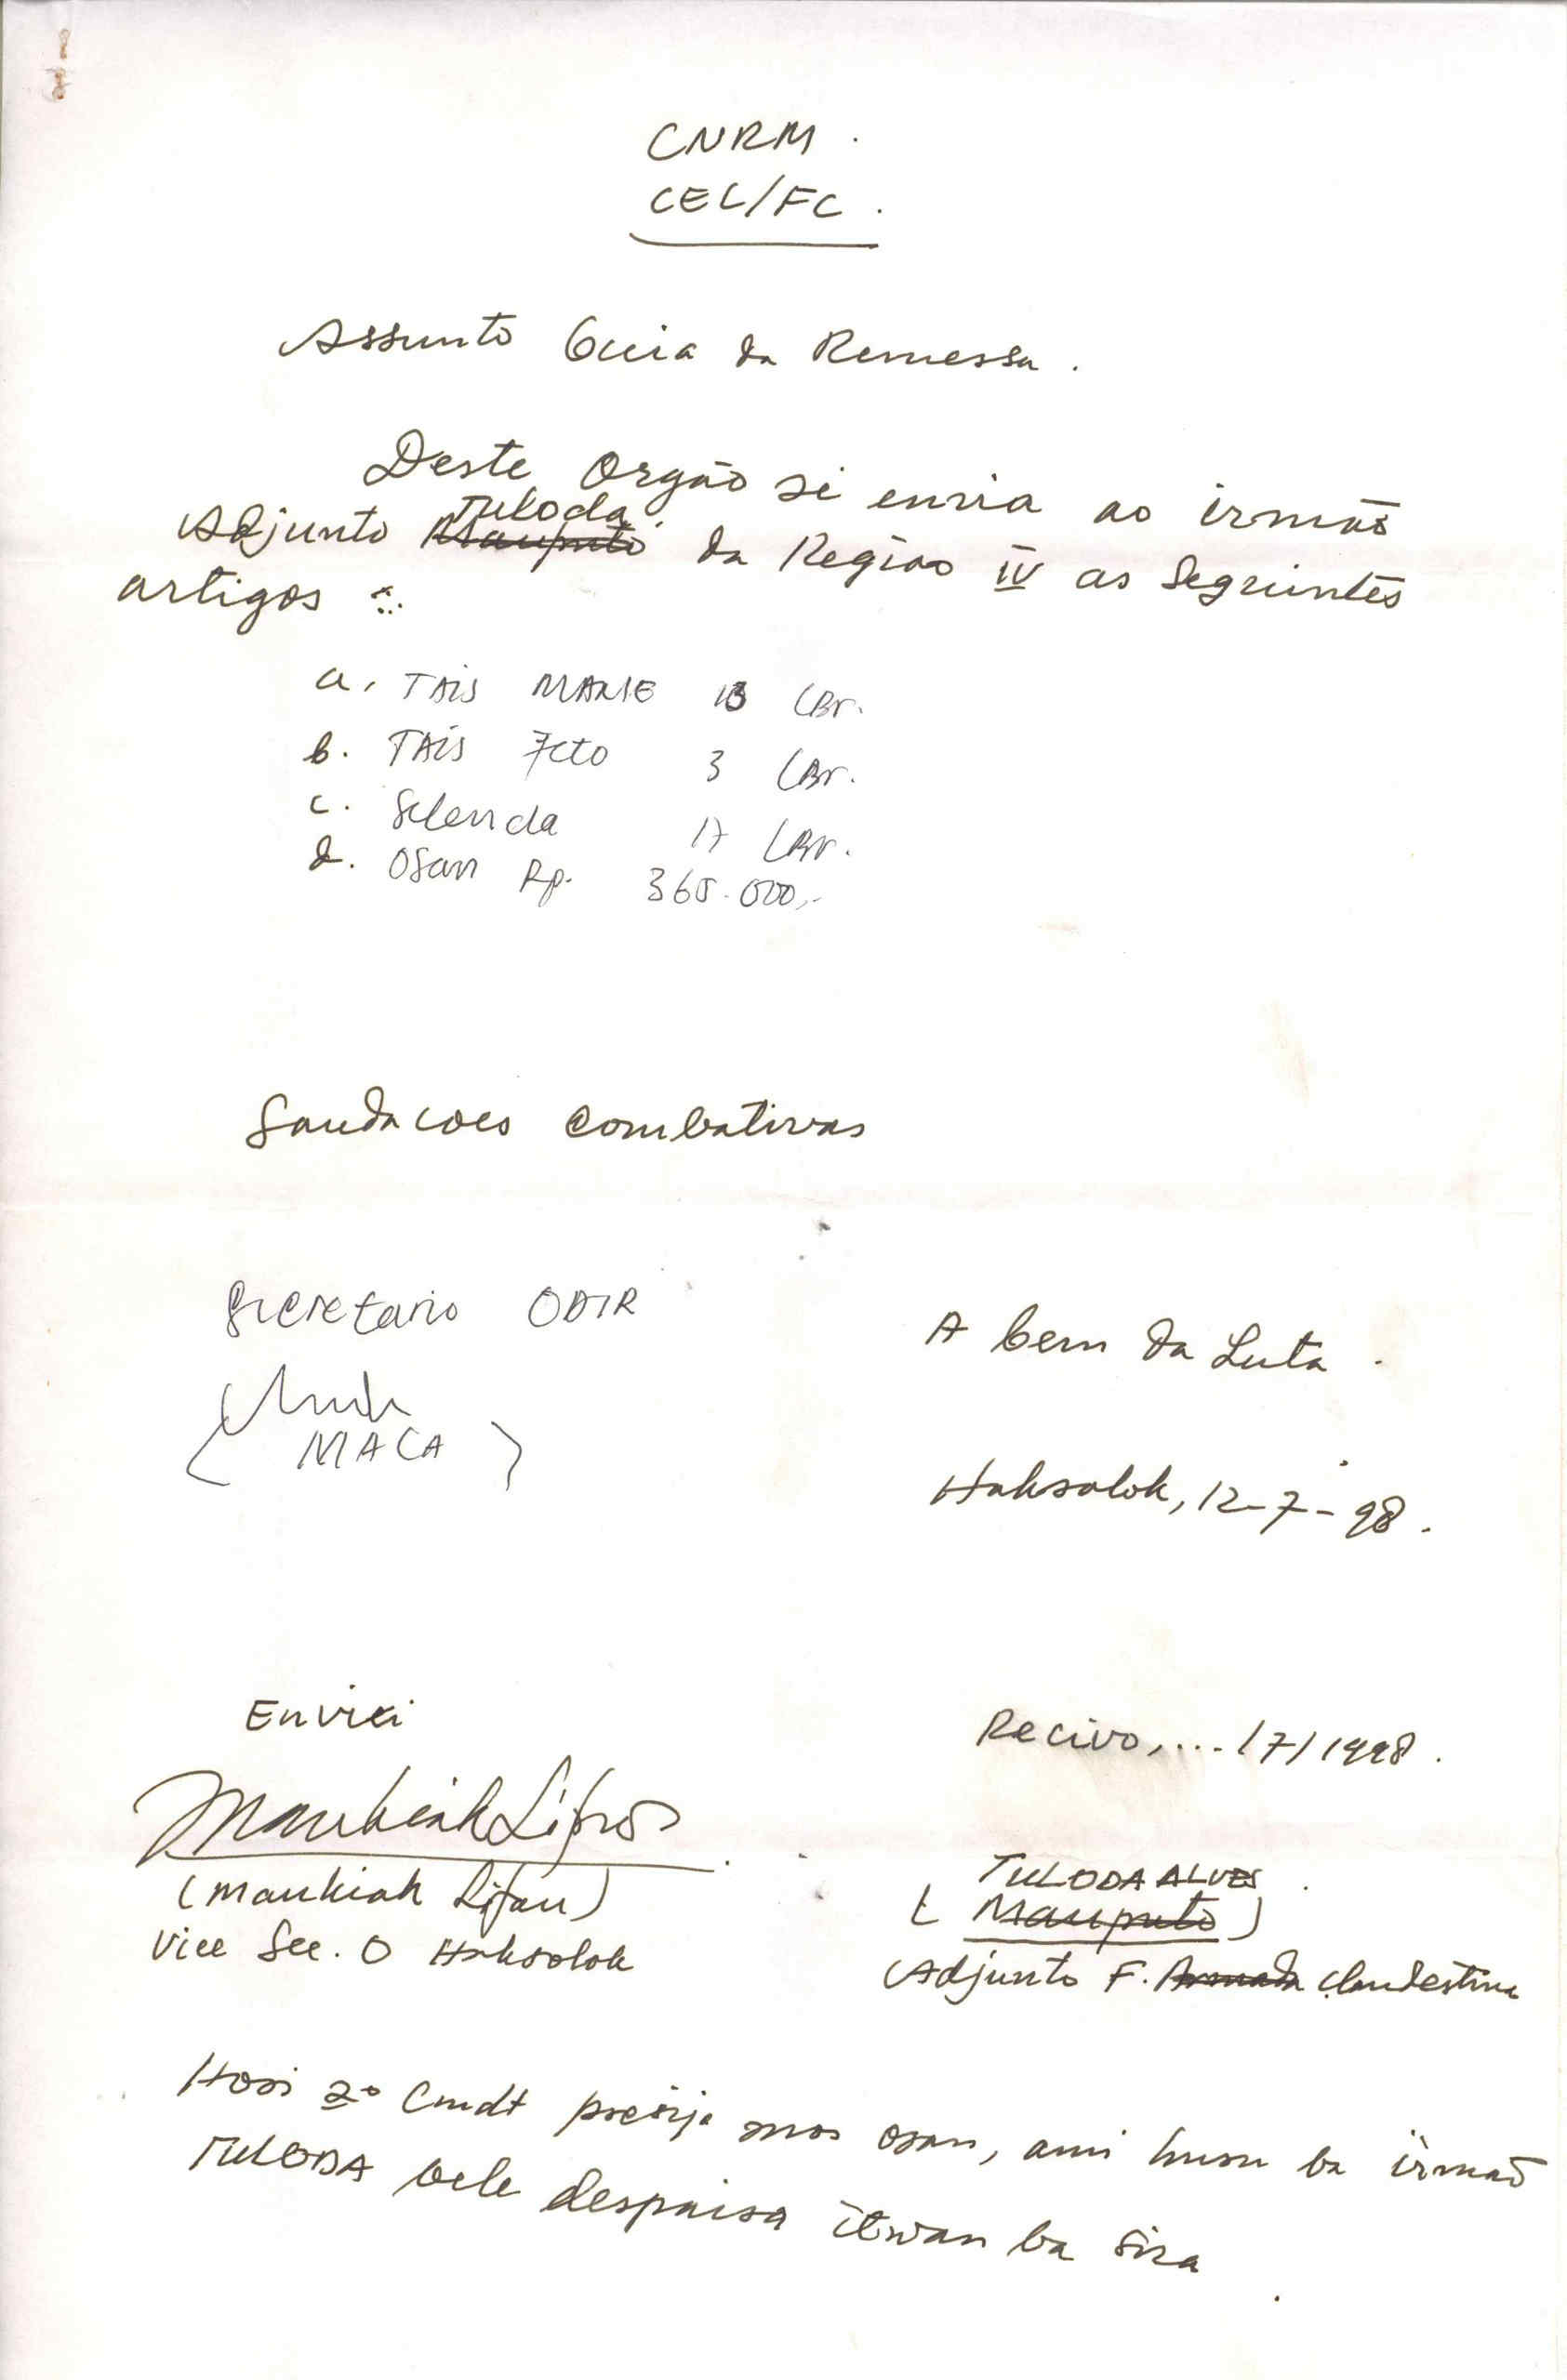 CNRM.
CEL/FC.
Assunto Guia da Remessa.
Deste Orgão si envia ao irmão
Tuloda
Adjunto Mauputo da Região IV as Seguintes
artigos :
a. TAIS MANE 13 LBr.
b. TAIS Feto 3 LBr.
c. Selenda 17 LBr.
d. Osan Rp. 365.000,-
Saudacoes Combativas
Secretario ODIR
A bem da Luta.
( MACA )
Haksolok, 12-7-98.
Enviei
Recivo, .... /7/1998.
Maukiak Lifau
TULODA ALVES
(Maukiak Lifau)
( Mauputo )
Vice Sec. O Haksolok
Adjunto F. Armada Clandestina
Hosi 2º Cmdt presija mos osan, ami husu ba irmão
TULODA bele despaisa itwan ba sira.